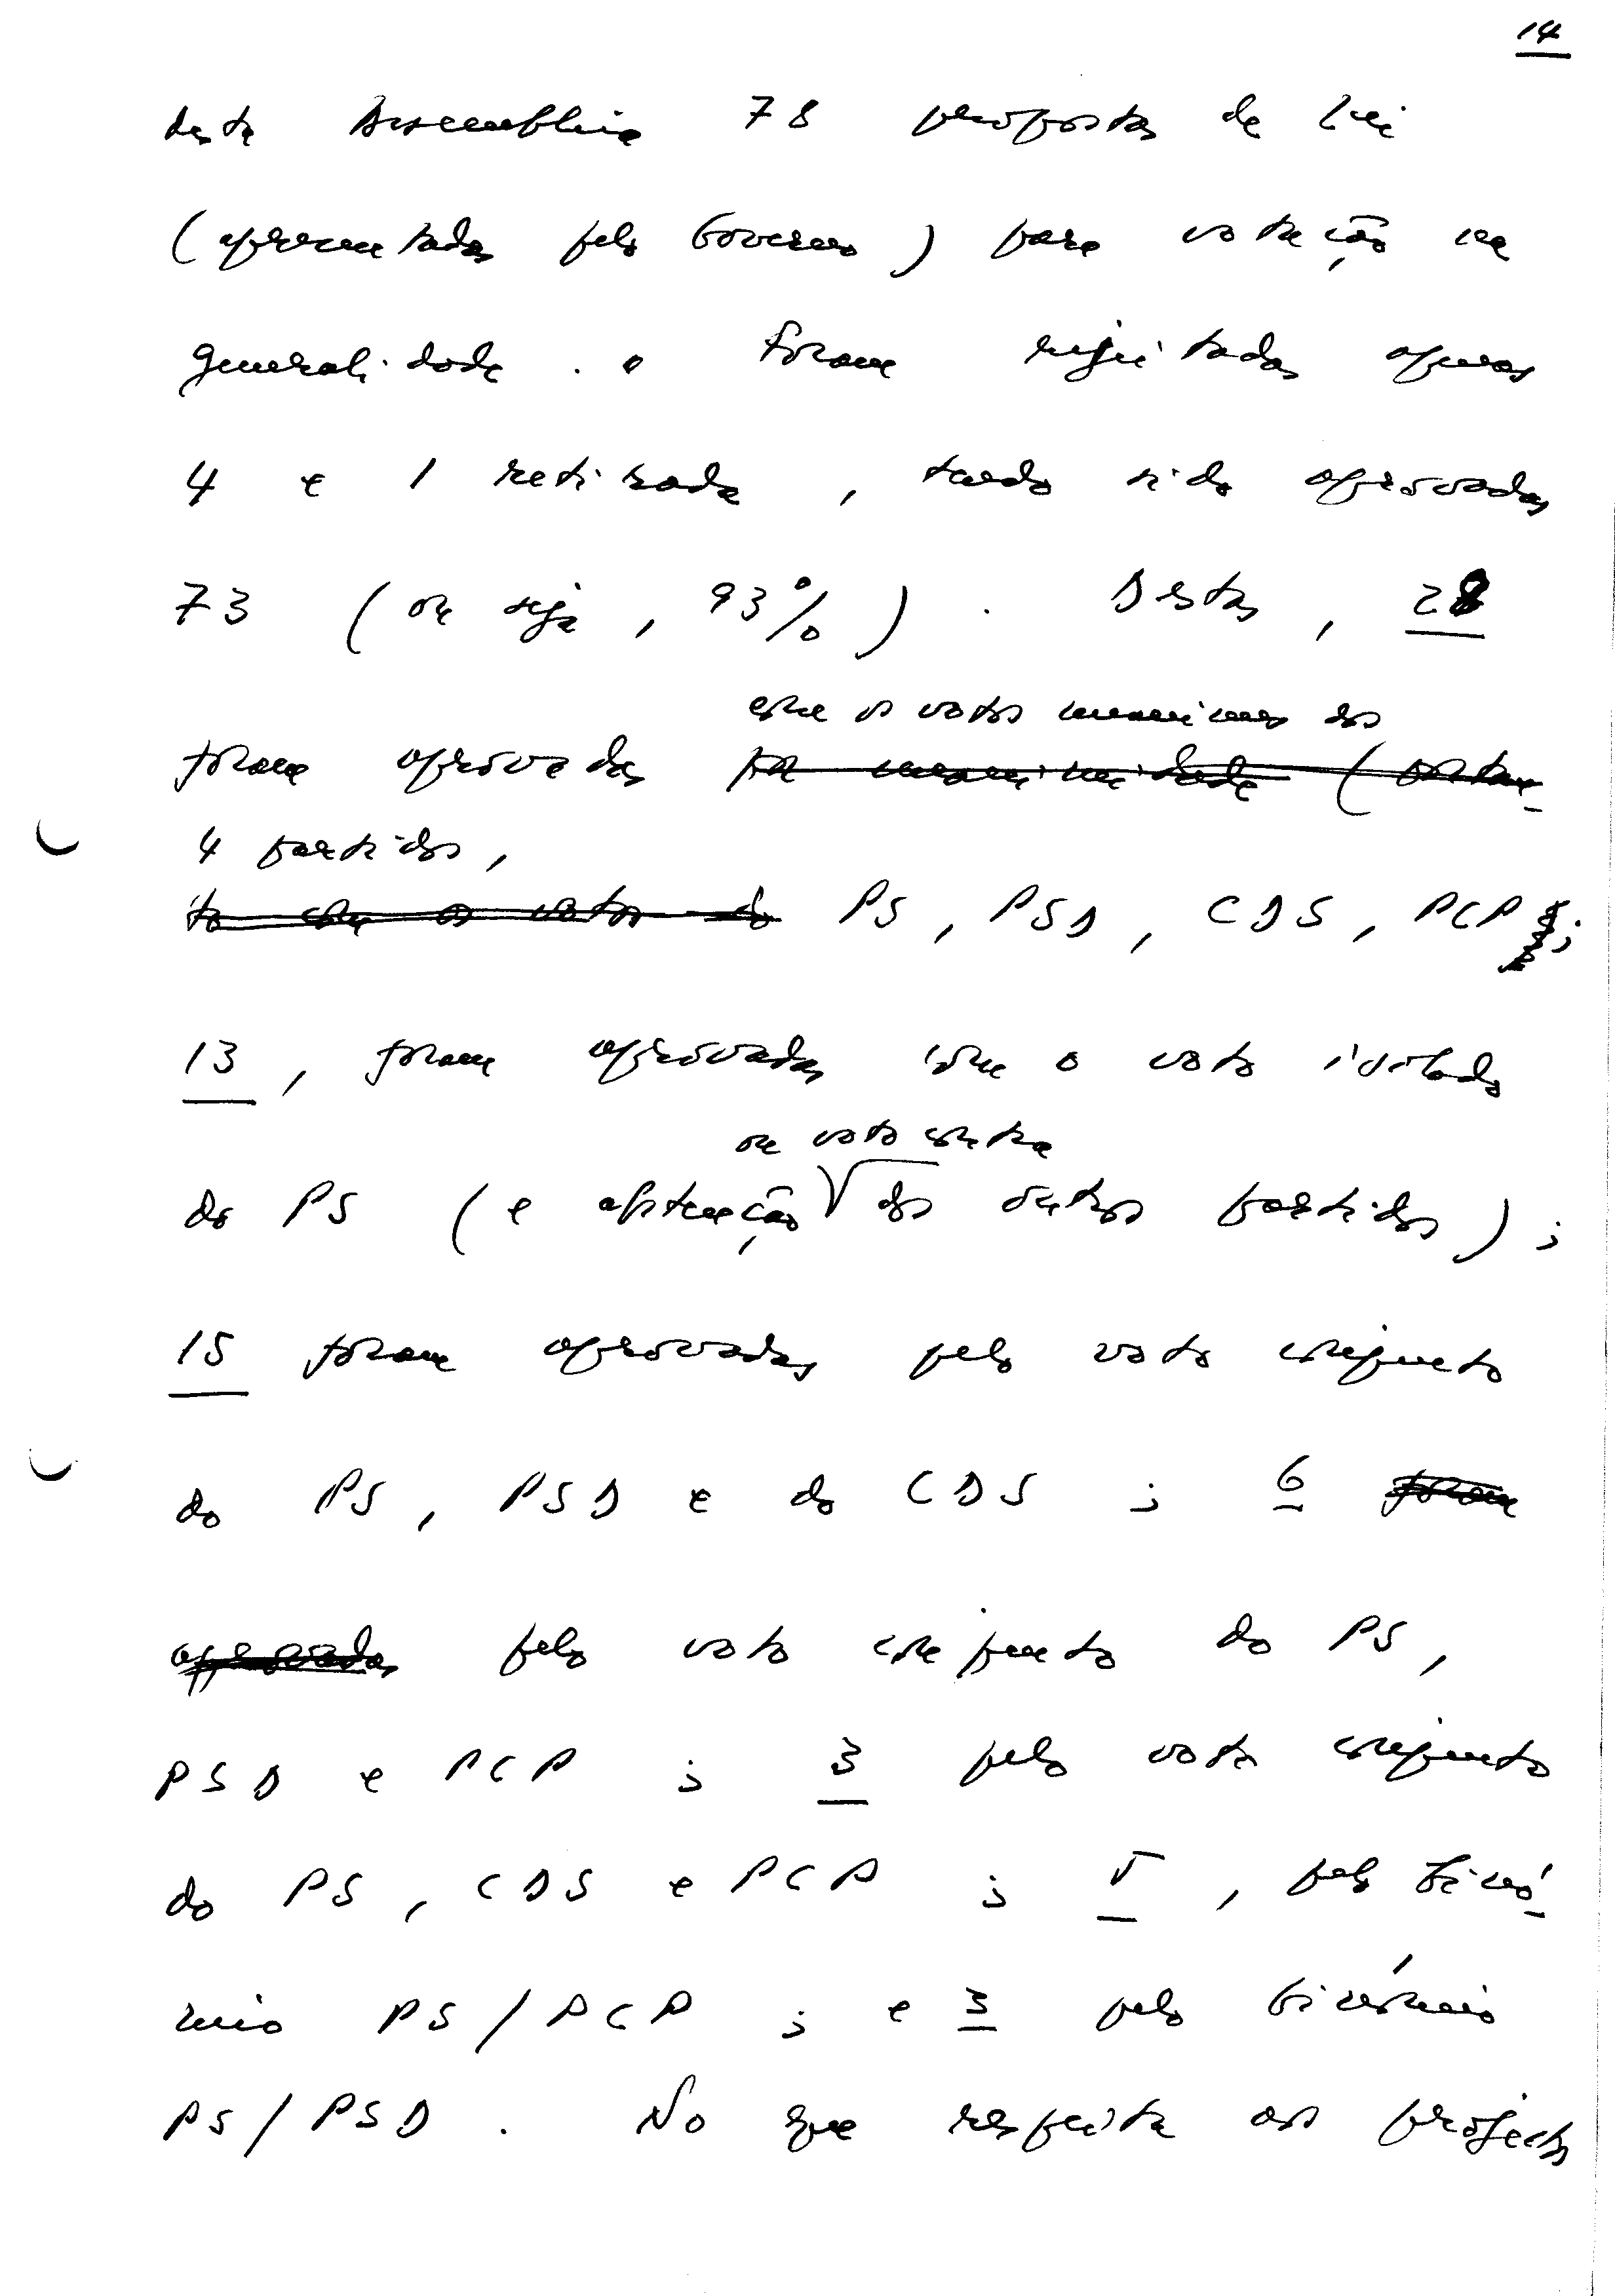 14
desta Assembleia 78 propostas de Lei
(apresentadas pelo Governo) para votação na
generalidade. Foram rejeitadas apenas
4 e 1 retirada, tendo sido aprovadas
73 (ou seja, 93%). Destas, 28
com os votos unanimes dos
foram aprovadas por unanimidade (portan-
4 partidos,
to com os votos do PS, PSD, CDS, PCP;
13, foram aprovadas com o voto isolado
ou voto contra
do PS (e abstenção dos outros partidos);
15 foram aprovadas pelo voto conjunto
do PS, PSD e do CDS; 6 foram
aprovadas pelo voto conjunto do PS,
PSD e PCP; 3 pelo voto conjunto
do PS, CDS e PCP; 5, pelo binó-
mio PS/PCP; e 3 pelo binómio
PS/PSD. No que respeita aos projectos